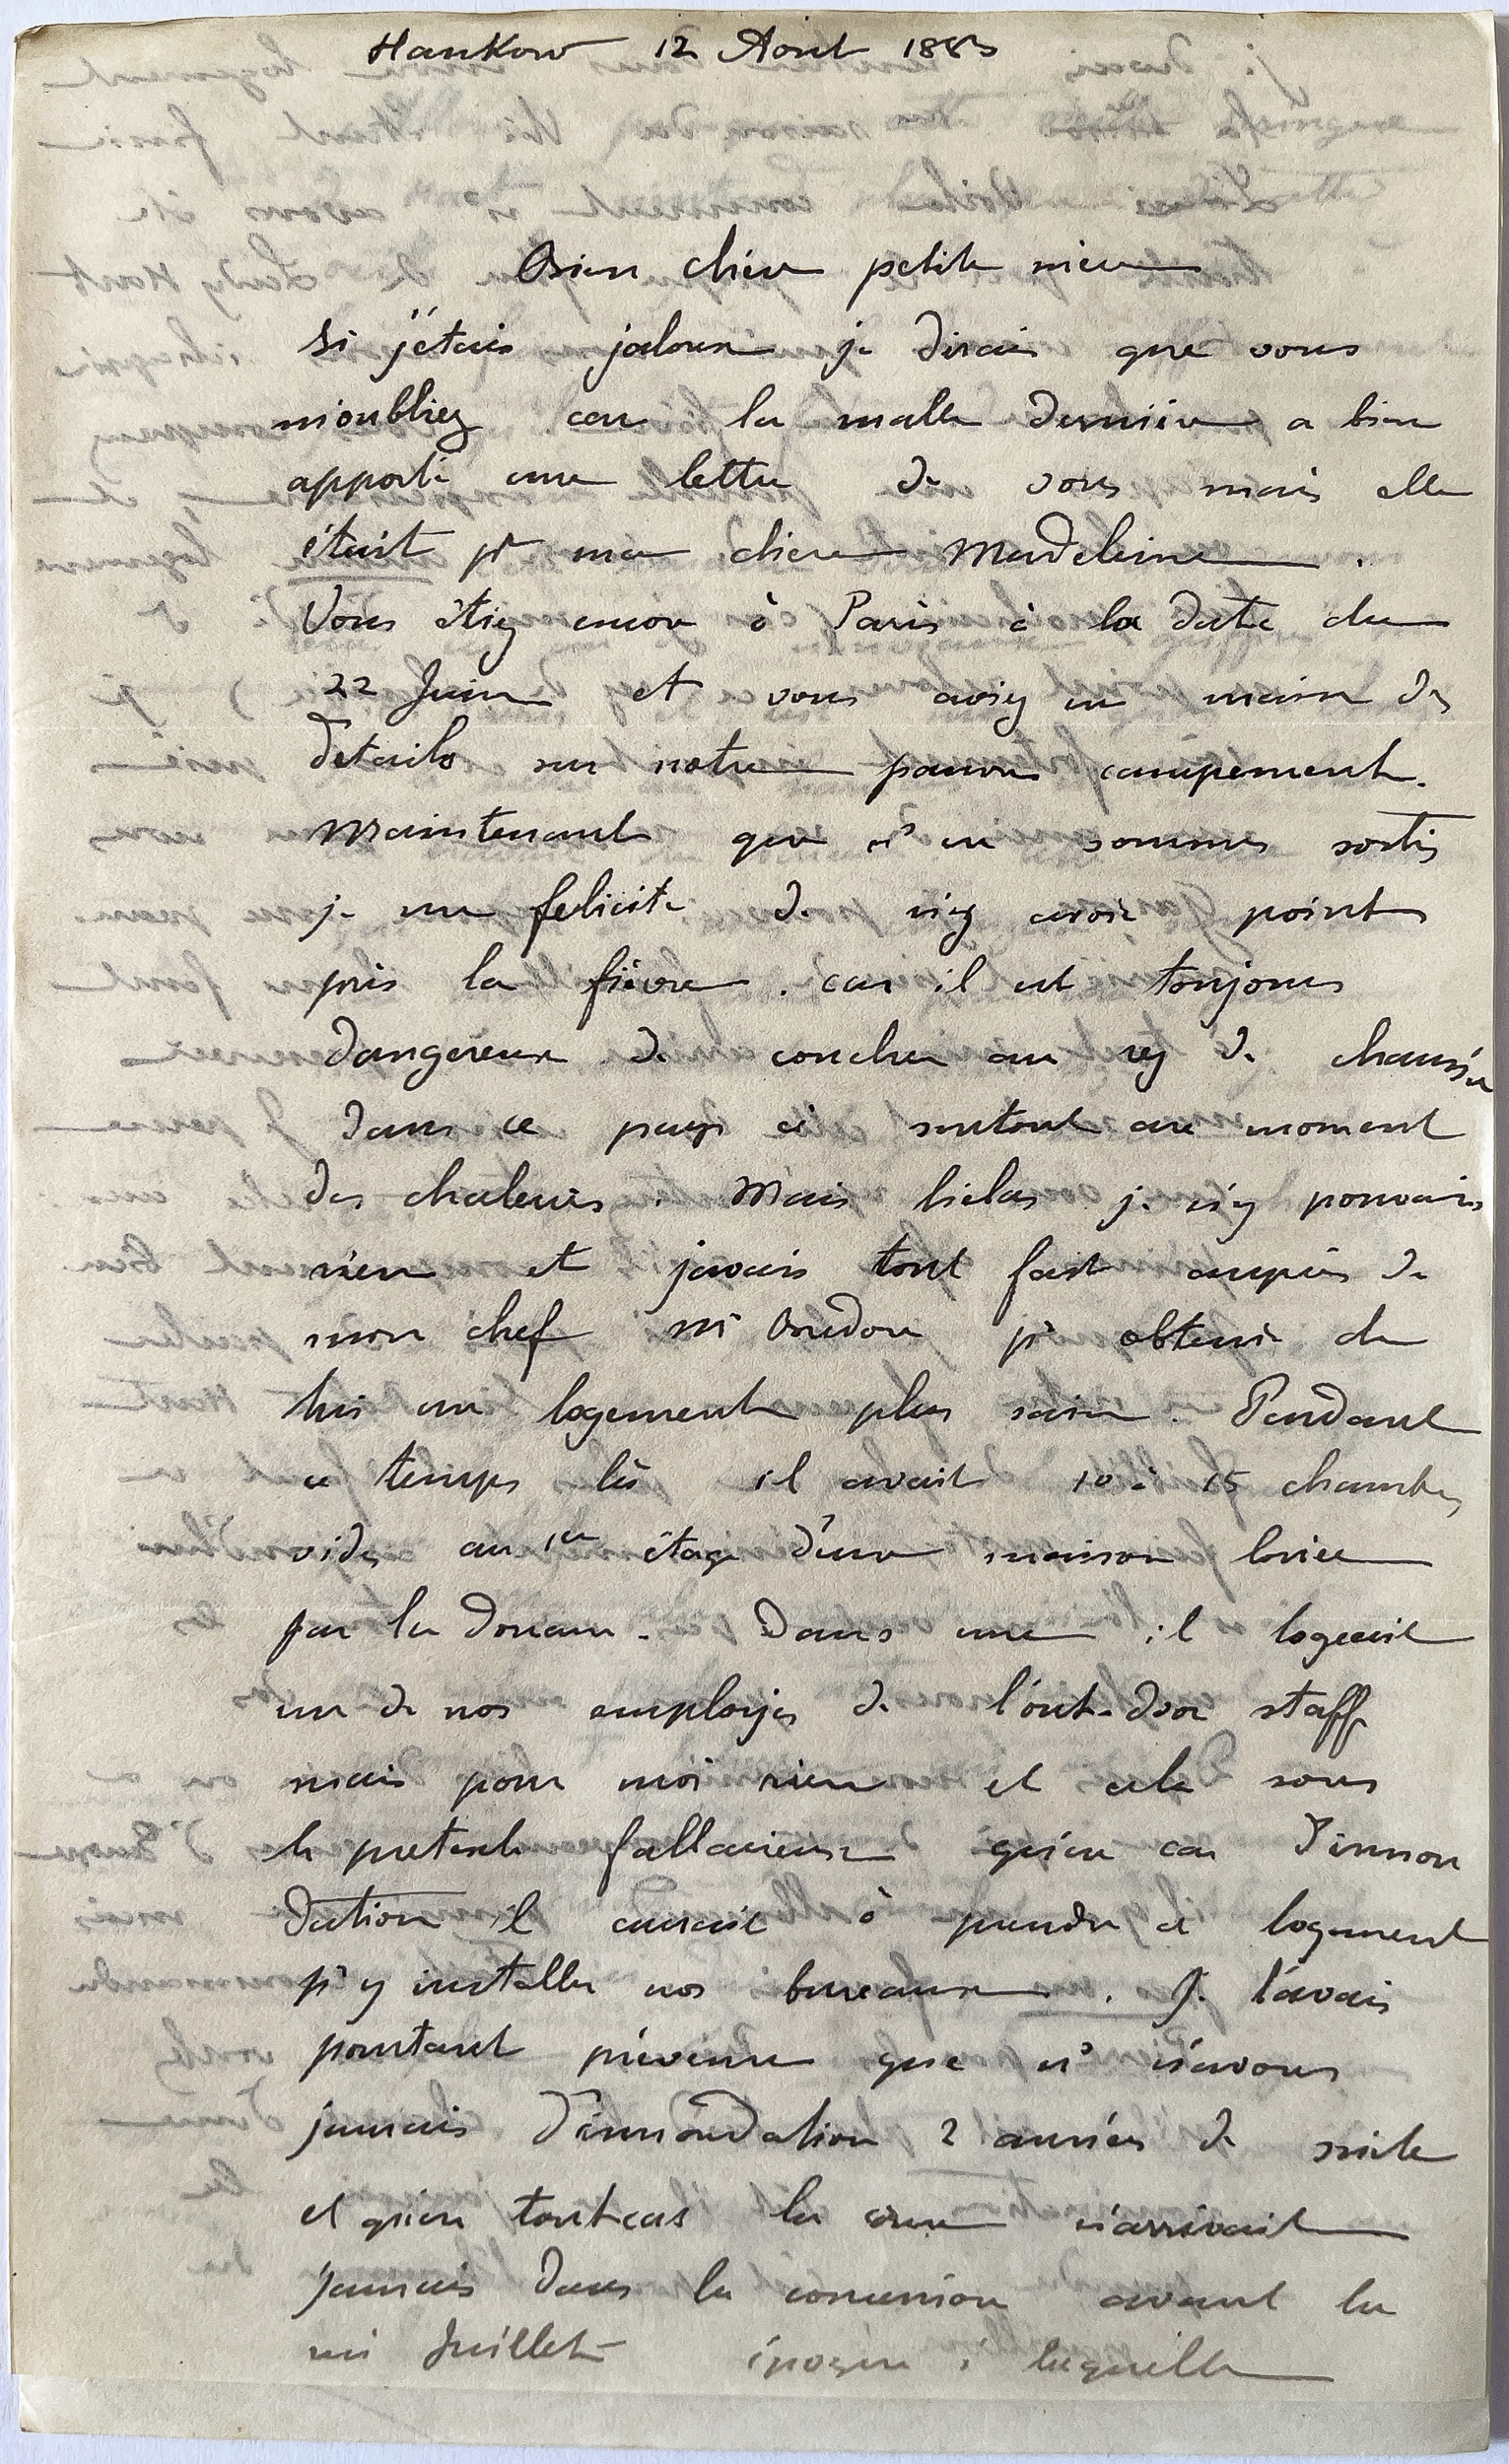 Hankow 12 Aout 1883
Bien chère petite mère
Si j'étais jaloux je dirais que vous
m'oubliez car la malle dernière a bien
apporté une lettre de vous mais elle
était pr ma chère Madeleine.
Vous étiez encore à Paris à la date du
22 Juin et vous aviez en main des
details sur notre pauvre campement.
Maintenant que ns en sommes sortis
je me felicite de n'y avoir point
pris la fièvre. car il est toujours
dangereux de coucher au rez de chaussée
dans ce pays ci surtout au moment
des chaleurs. Mais helas je n'y pouvais
rien et javais tout fait auprès de
mon chef Mr pr obtenir de
lui un logement plus sain. Pendant
ce temps là il avait 10 à 15 chambres
vides au 1er étage d'une maison louée
par la Douane. Dans une il logeait
un de nos employés de l'out-door staff
mais pour moi rien et cela sous
le pretexte fallacieux qu'en cas d'innon
dation il aurait à prendre ce logement
pr y installer nos bureaux. Je l'avais
pourtant prévenu que ns n'avons
jamais d'innondation 2 années de suite
et qu'en tout cas la crue n'arrivait
jamais dans la concession avant la
mi Juillet époque à laquelle